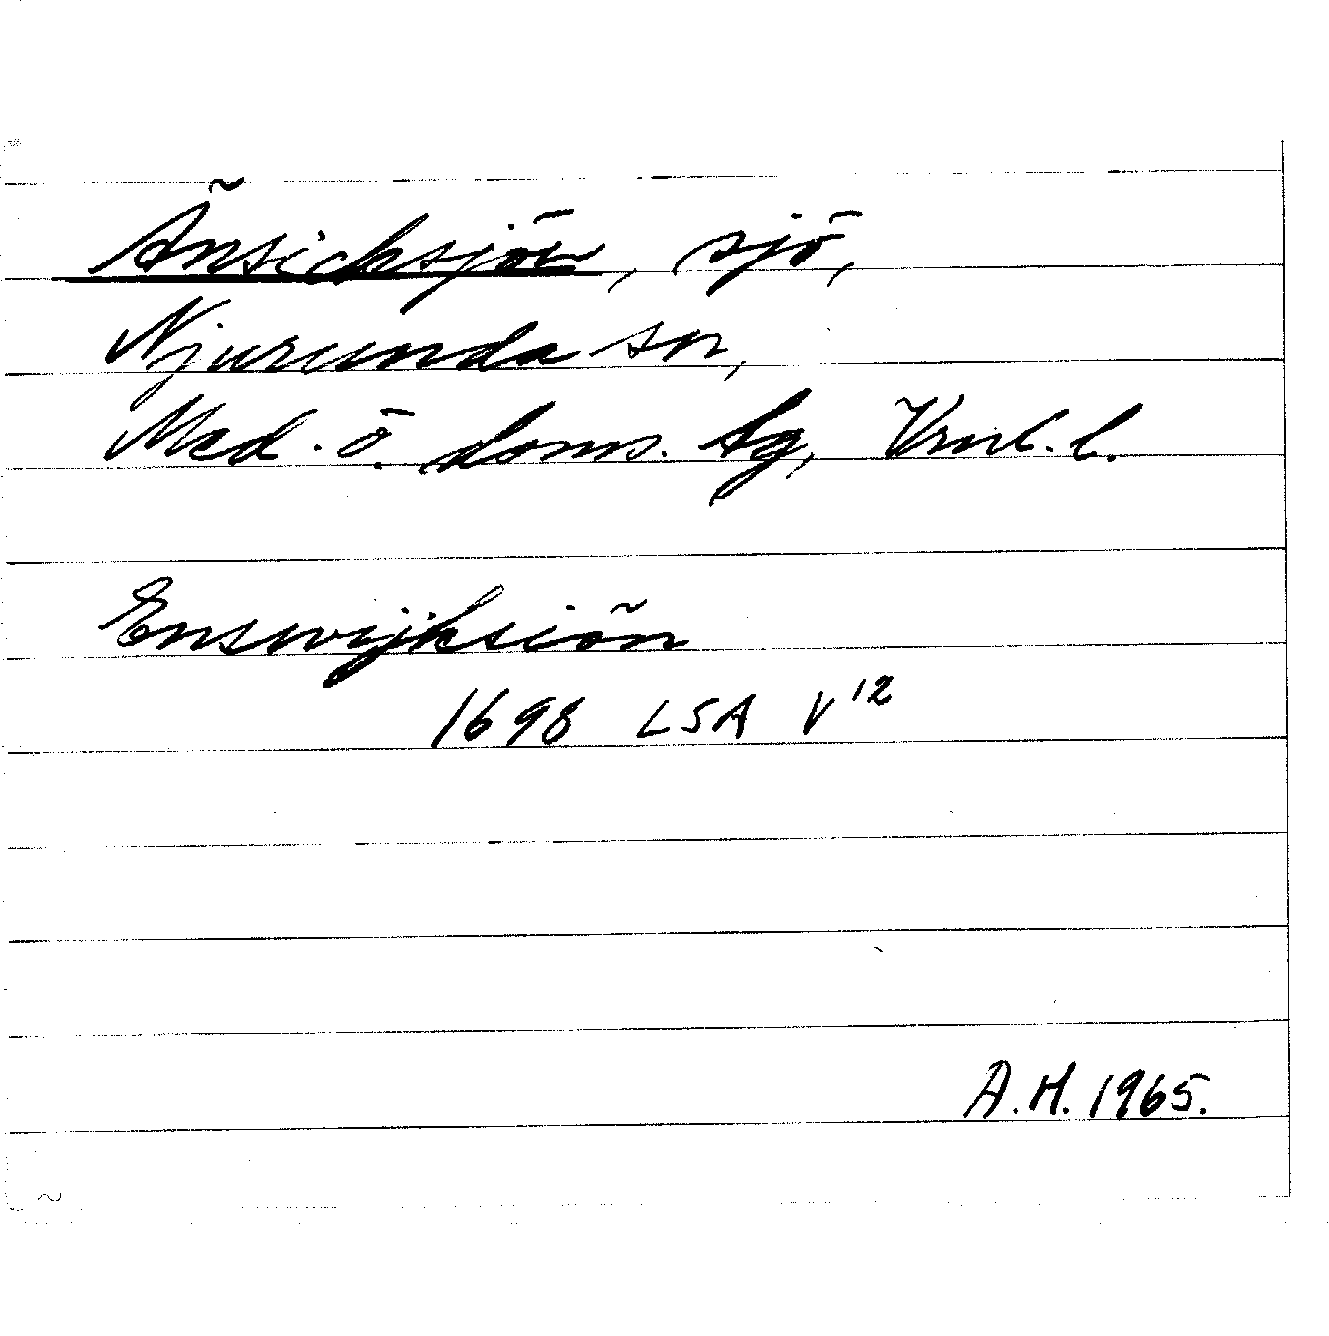 Änsicksjön, sjö,
Njurunda sn,
Med. ö. doms. tg, Vrnl. l.
Enswijksiön
1698 LSA V 12
A.H. 1965.